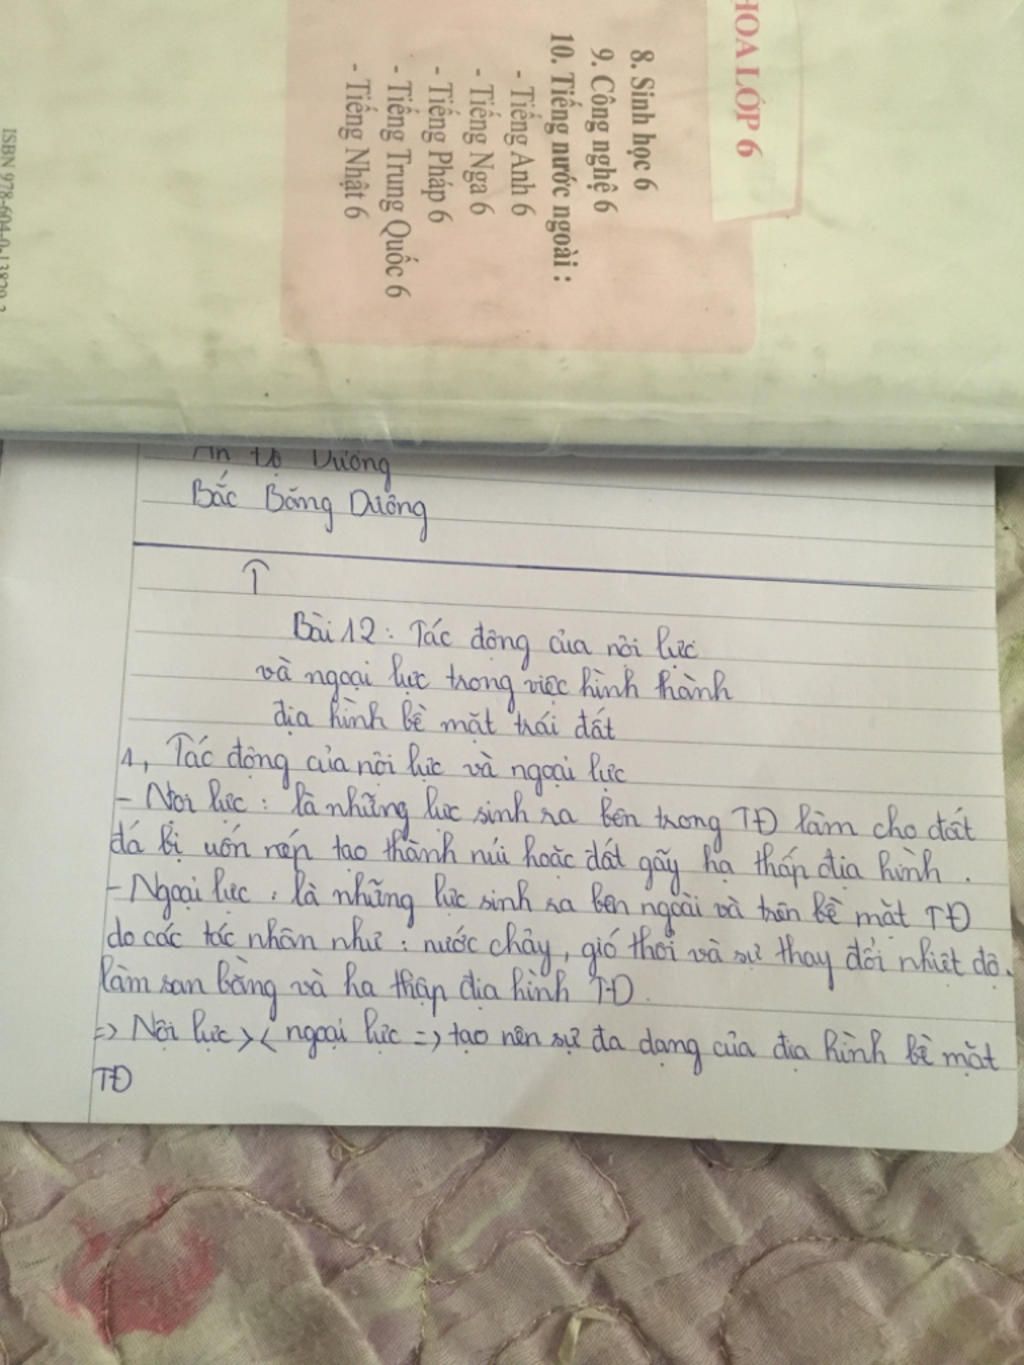 HOA LỚP 6
8. Sinh học 6
9. Công nghệ 6
10. Tiếng nước ngoài :
- Tiếng Anh 6
- Tiếng Nga 6
- Tiếng Pháp 6
- Tiếng Trung Quốc 6
- Tiếng Nhật 6
ISBN 978-604-0-13829-3
Ấn Độ Dương
Bắc Băng Dương
Bài 12: Tác động của nội lực
và ngoại lực trong việc hình thành
địa hình bề mặt trái đất
1, Tác động của nội lực và ngoại lực
- Nội lực : là những lực sinh ra bên trong TĐ làm cho đất
đá bị uốn nếp tạo thành núi hoặc đất gãy hạ thấp địa hình .
- Ngoại lực : là những lực sinh ra bên ngoài và trên bề mặt TĐ
do các tác nhân như : nước chảy, gió thổi và sự thay đổi nhiệt độ.
làm san bằng và hạ thấp địa hình TĐ.
=> Nội lực >< ngoại lực => tạo nên sự đa dạng của địa hình bề mặt
TĐ